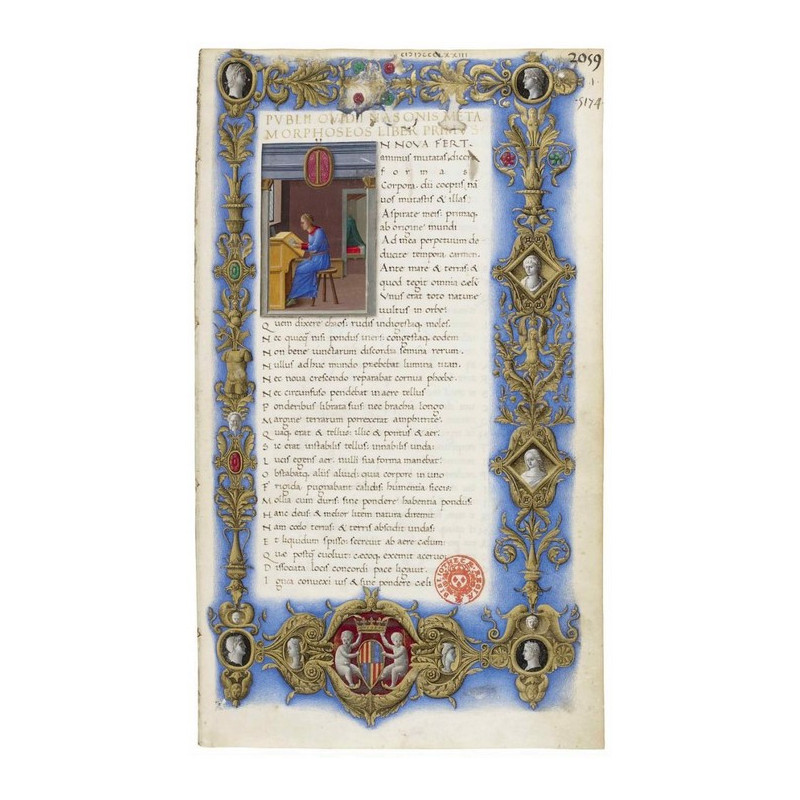 2059
.1.
5174.
PVBLII OVIDII NASONIS META
MORPHOSEOS LIBER PRIMVS
IN NOVA FERT
animus mutatas dicere
formas
Corpora. dii coeptis nā
uos mutastis & illas:
Aspirate meis: primaq;
ab origine mundi
Ad mea perpetuum de
ducite tempora carmen.
Ante mare & terras: &
quod tegit omnia cælū
Vnus erat toto naturæ
uultus in orbe:
Quem dixere chaos: rudis indigestaq; moles.
Nec quicq nisi pondus iners: congestaq; eodem
Non bene iunctarum discordia semina rerum.
Nullus adhuc mundo præbebat lumina titan.
Nec noua crescendo reparabat cornua phoebe.
Nec circunfuso pendebat in aere tellus
Ponderibus librata suis: nec brachia longo
Margine terrarum porrexerat amphitrite.
Quaq; erat & tellus: illic & pontus & aer.
Sic erat instabilis tellus: innabilis unda:
Lucis egens aer. nulli sua forma manebat:
Obstabatq; aliis aliud: quia corpore in uno
Frigida pugnabant calidis: humentia siccis:
Mollia cum duris: sine pondere habentia pondus
Hanc deus: & melior litem natura diremit
Nam coelo terras: & terris abscidit undas:
Et liquidum spisso: secreuit ab aere cælum:
Quæ postq euoluit: cæcoq; exemit aceruo:
Dissociata locis concordi pace ligauit.
Ignea conuexi uis & sine pondere cæli
BIBLIOTHECÆ REGIÆ